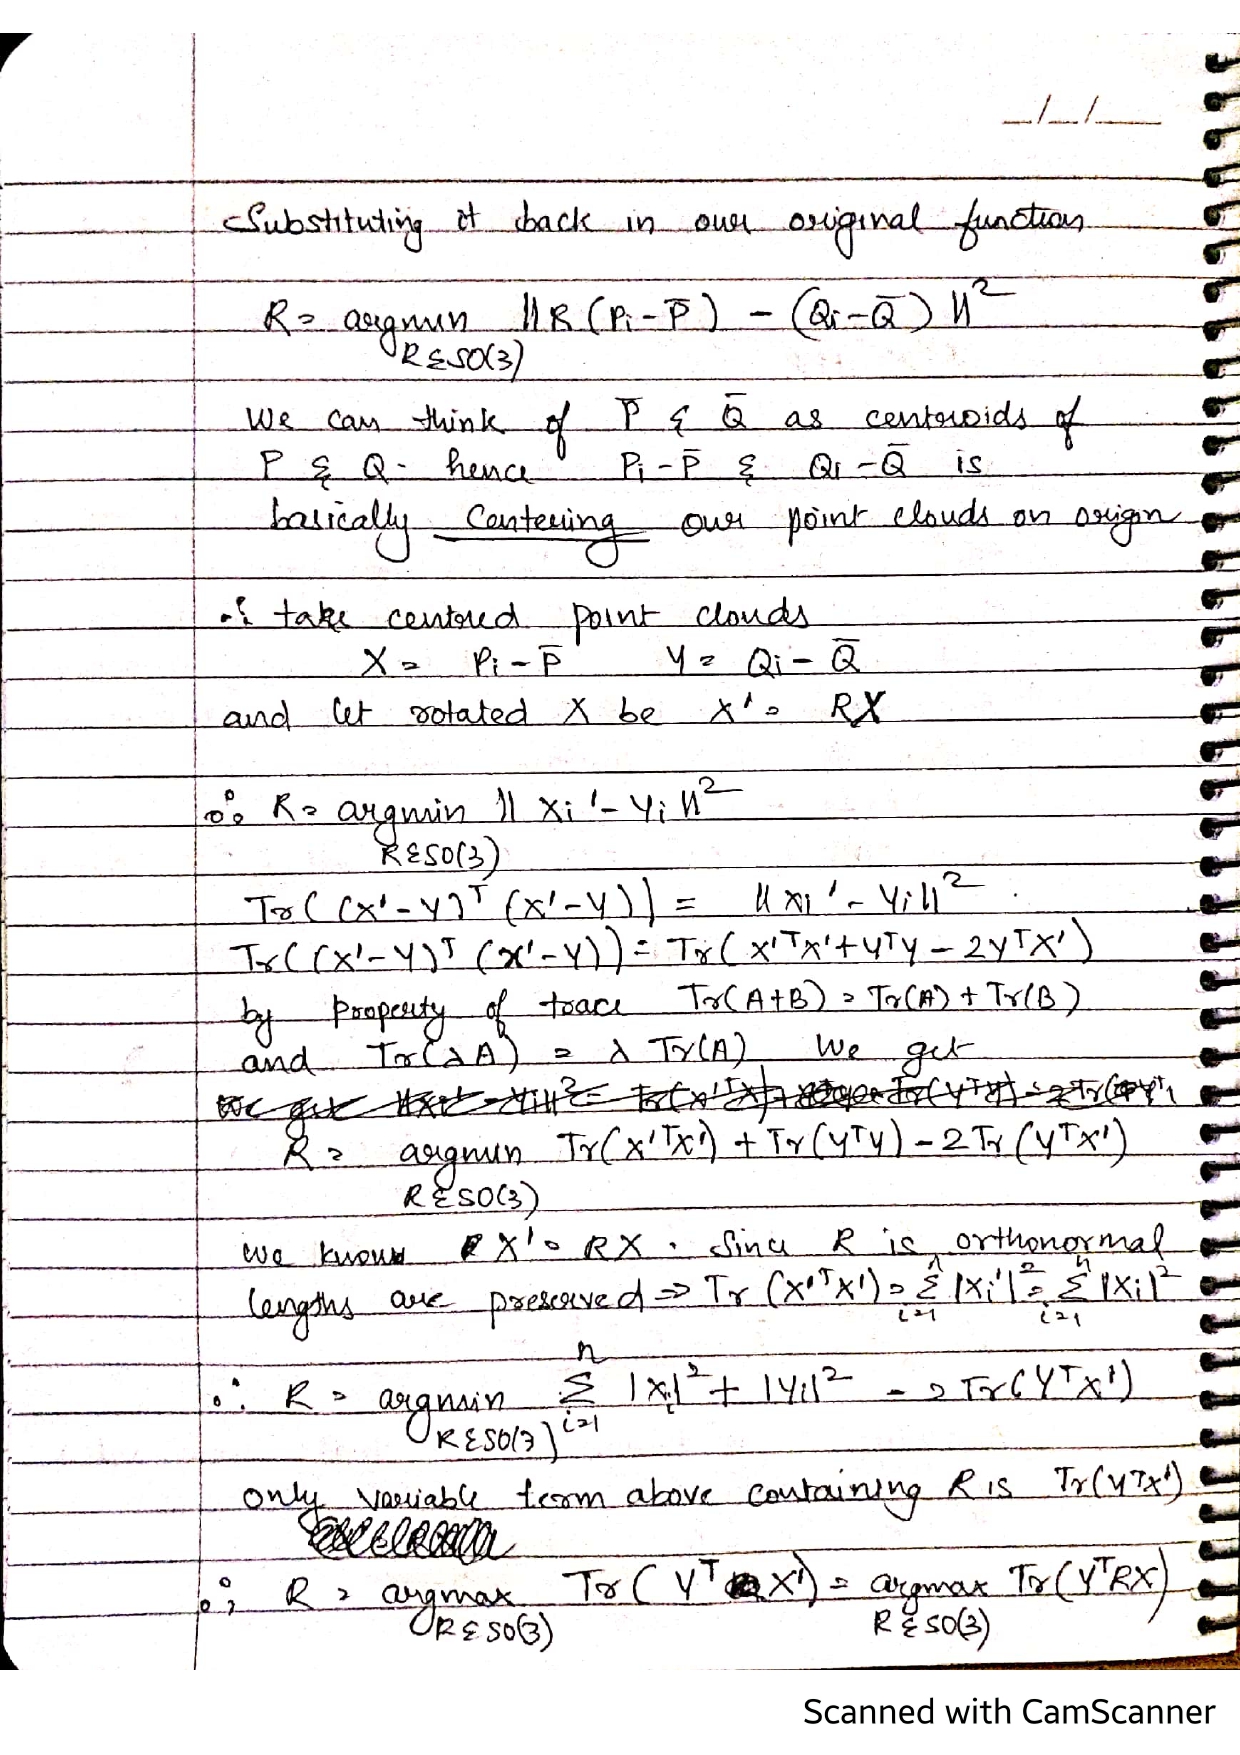 _/_/__
Substituting it back in our original function
R = argmin ||R(Pi - P̄) - (Qi - Q̄)||²
R∈SO(3)
We can think of P̄ & Q̄ as centroids of
P & Q. hence Pi - P̄ & Qi - Q̄ is
basically Centering our point clouds on origin
∴ take centred point clouds
X = Pi - P̄ Y = Qi - Q̄
and let rotated X be X' = RX
∴ R = argmin || Xi' - Yi ||²
R∈SO(3)
Tr((X'-Y)ᵀ (X'-Y)) = ||Xi' - Yi||²
Tr((X'-Y)ᵀ (X'-Y)) = Tr(X'ᵀX' + YᵀY - 2YᵀX')
by property of trace Tr(A+B) = Tr(A) + Tr(B)
and Tr(λA) = λ Tr(A) We get
R = argmin Tr(X'ᵀX') + Tr(YᵀY) - 2Tr(YᵀX')
R∈SO(3)
We know X' = RX. Since R is orthonormal
lengths are preserved ⇒ Tr(X'ᵀX') = Σⁿᵢ₌₁ |Xi'|² = Σⁿᵢ₌₁ |Xi|²
∴ R = argmin Σⁿᵢ₌₁ |Xi|² + |Yi|² - 2Tr(YᵀX')
R∈SO(3)
only variable term above containing R is Tr(YᵀX')
∴ R = argmax Tr(YᵀX') = argmax Tr(YᵀRX)
R∈SO(3) R∈SO(3)
Scanned with CamScanner